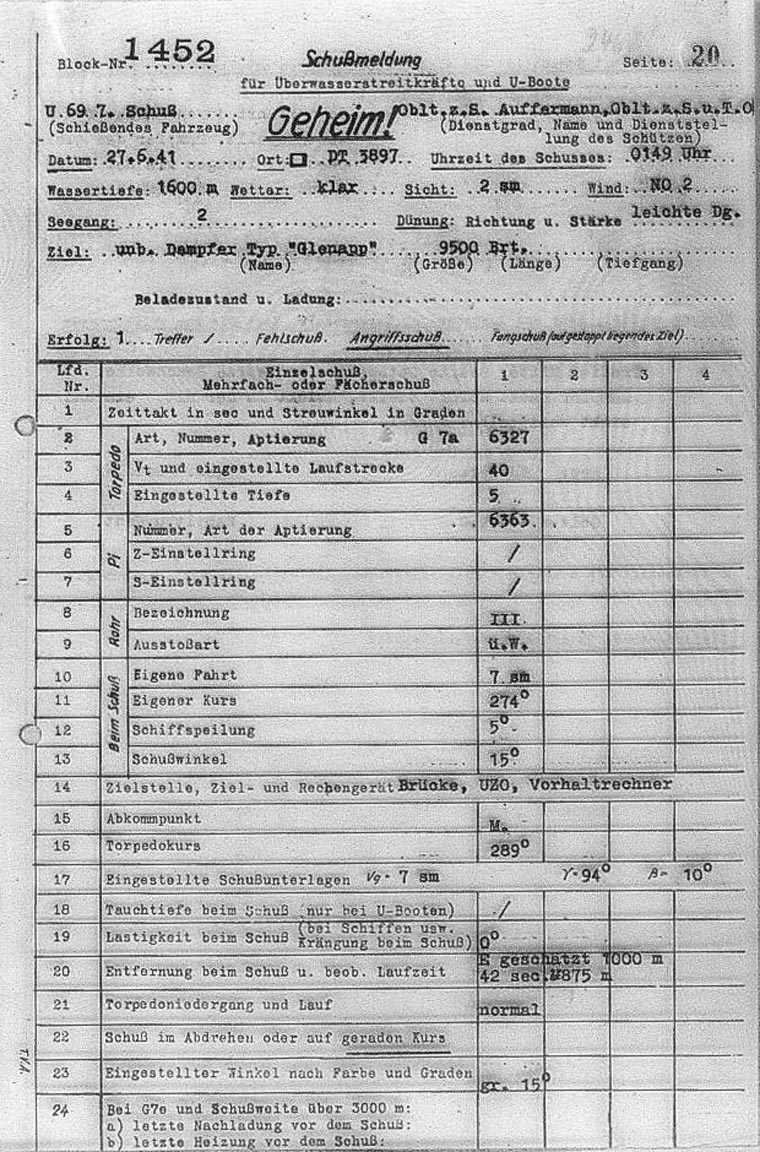 Block-Nr. 1452 Schußmeldung Seite: 20
für Überwasserstreitkräfte und U-Boote
U.69.7. Schuß Geheim! Oblt.z.S. Auffermann,Oblt.z.S.u.T.O
(Schießendes Fahrzeug) (Dienstgrad, Name und Dienststel-
lung des Schützen)
Datum: 27.6.41 Ort: 3897 Uhrzeit des Schusses: 0149 Uhr
Wassertiefe: 1600 m Wetter: klar Sicht: 2 sm Wind: NO 2
Seegang: 2 Dünung: Richtung u. Stärke leichte Dg.
Ziel: unb. Dampfer Typ "Glenapp" 9500 Brt.
(Name) (Größe) (Länge) (Tiefgang)
Beladezustand u. Ladung:
Erfolg: 1 Treffer / Fehlschuß. Angriffsschuß Fangschuß (auf gestoppt liegendes Ziel)
Lfd. Nr. Einzelschuß, Mehrfach- oder Fächerschuß 1 2 3 4
1 Zeittakt in sec und Streuwinkel in Graden
Torpedo
2 Art, Nummer, Aptierung G 7a 6327
3 Vt und eingestellte Laufstrecke 40
4 Eingestellte Tiefe 5
Pi
5 Nummer, Art der Aptierung 6363
6 Z-Einstellring /
7 S-Einstellring /
Rohr
8 Bezeichnung III
9 Ausstoßart ü.W.
Beim Schuß
10 Eigene Fahrt 7 sm
11 Eigener Kurs 274°
12 Schiffspeilung 5°
13 Schußwinkel 15°
14 Zielstelle, Ziel- und Rechengerät Brücke, UZO, Vorhaltrechner
15 Abkommpunkt M.
16 Torpedokurs 289°
17 Eingestellte Schußunterlagen Vg = 7 sm γ = 94° β = 10°
18 Tauchtiefe beim Schuß (nur bei U-Booten) /
19 Lastigkeit beim Schuß (bei Schiffen usw. Krängung beim Schuß) 0°
20 Entfernung beim Schuß u. beob. Laufzeit E geschätzt 1000 m
42 sec 875 m
21 Torpedoniedergang und Lauf normal
22 Schuß im Abdrehen oder auf geraden Kurs
23 Eingestellter Winkel nach Farbe und Graden gr. 15°
24 Bei G7e und Schußweite über 3000 m:
a) letzte Nachladung vor dem Schuß:
b) letzte Heizung vor dem Schuß: